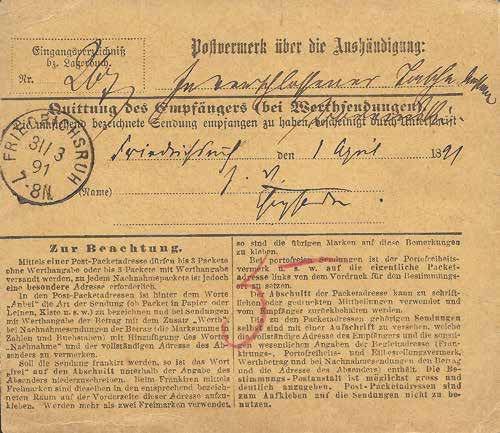 Eingangsverzeichniß
bz. Lagerbuch.
Nr.
Postvermerk über die Aushändigung:
In verschlossener Tasche
Quittung des Empfängers (bei Werthsendungen).
bezeichnete Sendung empfangen zu haben, bescheinigt durch Unterschrift
FRIEDRICHSRUH
31/3
91
7-8N.
Friedrichsruh den 1 April 1891
(Name)
Zur Beachtung.
Mittels einer Post-Packetadresse dürfen bis 3 Packete
ohne Werthangabe oder bis 3 Packete mit Werthangabe
versandt werden, zu jedem Nachnahmepackete ist jedoch
eine besondere Adresse erforderlich.
In den Post-Packetadressen ist hinter dem Worte
„Anbei" die Art der Sendung (ob Packet in Papier oder
Leinen, Kiste u. s. w.) zu bezeichnen und bei Sendungen
mit Werthangabe der Betrag mit dem Zusatz „Werth",
bei Nachnahmesendungen der Betrag (die Marksumme in
Zahlen und Buchstaben) mit Hinzufügung des Wortes
„Nachnahme" und der vollständigen Adresse des Ab-
senders zu vermerken.
Soll die Sendung frankirt werden, so ist das Wort
„frei" auf den Abschnitt unterhalb der Angabe des
Absenders niederzuschreiben. Beim Frankiren mittels
Freimarken sind dieselben in den entsprechend bezeich-
neten Raum auf der Vorderseite dieser Adresse aufzu-
kleben. Werden mehr als zwei Freimarken verwendet,
so sind die übrigen Marken auf diese Bemerkungen
zu kleben.
Bei portofreien Sendungen ist der Portofreiheits-
vermerk u. s. w. auf die eigentliche Packet-
adresse links von dem Vordruck für den Bestimmungs-
setzen.
Abschnitt der Packetadresse kann zu schrift-
lichen oder gedruckten Mittheilungen verwendet und
vom Empfänger zurückbehalten werden.
zu den Packetadressen gehörigen Sendungen
selbst sind mit einer Aufschrift zu versehen, welche
vollständige Adresse des Empfängers und die sonsti-
wesentlichen Angaben der Begleitadresse (Fran-
kirungs-, Portofreiheits- und Eilbestellungsvermerk,
Werthbetrag und bei Nachnahmesendungen den Betrag
und die Adresse des Absenders) enthält. Die Be-
stimmungs-Postanstalt ist möglichst gross und
deutlich anzugeben. Post-Packetadressen sind
zum Aufkleben auf die Sendungen nicht zu be-
nutzen.